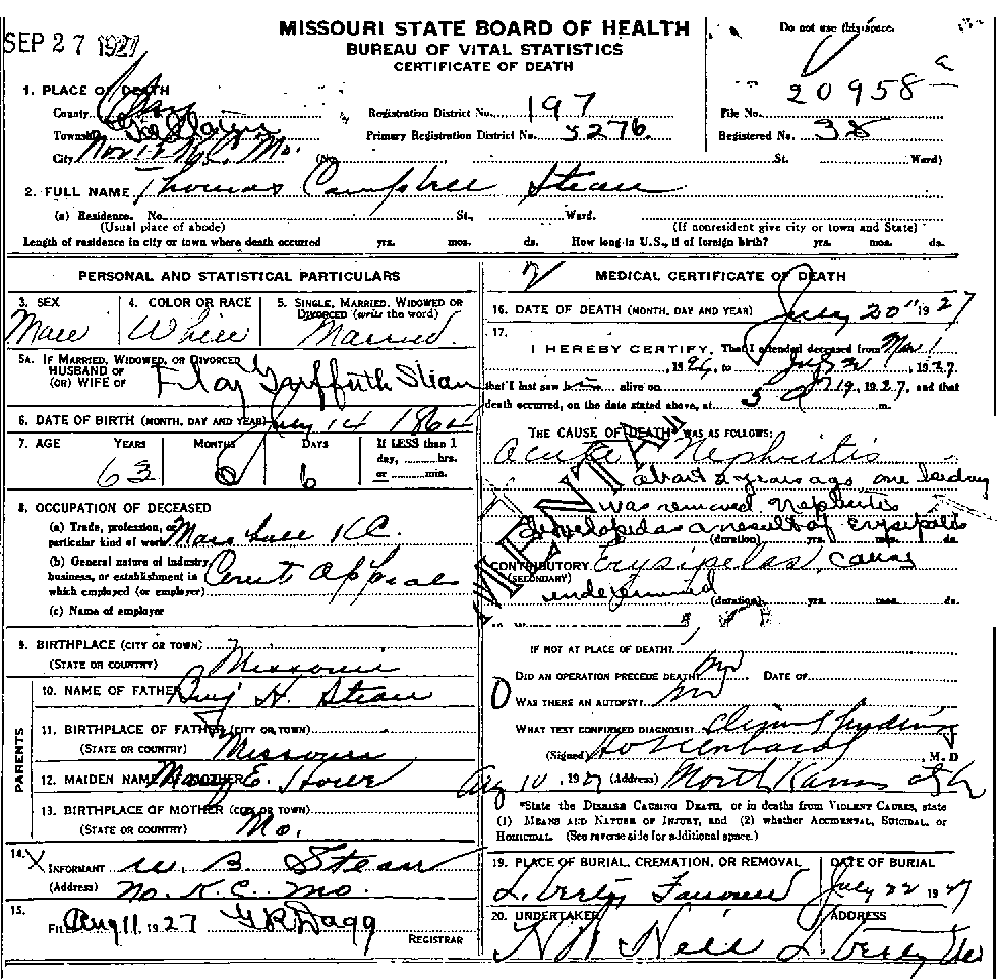 MISSOURI STATE BOARD OF HEALTH
BUREAU OF VITAL STATISTICS
CERTIFICATE OF DEATH
SEP 27 1927
Do not use this space.
1. PLACE OF DEATH
County Clay
Registration District No. 197
File No. 20958 a
Township
Primary Registration District No. 5276
Registered No. 38
City North K.C. Mo. (No. St. Ward)
2. FULL NAME Thomas Campbell
(a) Residence. No. St., Ward.
(Usual place of abode) (If nonresident give city or town and State)
Length of residence in city or town where death occurred yrs. mos. ds. How long in U.S., if of foreign birth? yrs. mos. ds.
PERSONAL AND STATISTICAL PARTICULARS
3. SEX
Male
4. COLOR OR RACE
White
5. SINGLE, MARRIED, WIDOWED OR
DIVORCED (write the word)
Married
5A. IF MARRIED, WIDOWED, OR DIVORCED
HUSBAND OF
(OR) WIFE OF
Griffith
6. DATE OF BIRTH (MONTH, DAY AND YEAR) July 14 1864
7. AGE YEARS MONTHS DAYS
63 0 6
If LESS than 1
day, hrs.
or min.
8. OCCUPATION OF DECEASED
(a) Trade, profession, or
particular kind of work K.C.
(b) General nature of industry,
business, or establishment in
which employed (or employer) Court Appeals
(c) Name of employer
9. BIRTHPLACE (CITY OR TOWN)
(STATE OR COUNTRY) Missouri
PARENTS
10. NAME OF FATHER Benj H.
11. BIRTHPLACE OF FATHER (CITY OR TOWN)
(STATE OR COUNTRY) Missouri
12. MAIDEN NAME OF MOTHER Mary E.
13. BIRTHPLACE OF MOTHER (CITY OR TOWN)
(STATE OR COUNTRY) Mo.
14. X
INFORMANT W. B.
(Address) No. K.C. Mo.
15.
FILED Aug 11 1927 G R Dagg
REGISTRAR
2 MEDICAL CERTIFICATE OF DEATH
16. DATE OF DEATH (MONTH, DAY AND YEAR) July 20" 1927
17.
I HEREBY CERTIFY, That I attended deceased from Mar 1
, 1926, to July 20, 1927,
that I last saw him alive on 19, 1927, and that
death occurred, on the date stated above, at 5 m.
THE CAUSE OF DEATH* WAS AS FOLLOWS:
Acute Nephritis
about 2 years ago one kidney
was removed Nephritis
developed as a result of Erysipelas
(duration) yrs. mos. ds.
CONTRIBUTORY Erysipelas, cause
(SECONDARY)
undetermined (duration) yrs. mos. ds.
IF NOT AT PLACE OF DEATH?
DID AN OPERATION PRECEDE DEATH? no DATE OF
WAS THERE AN AUTOPSY? no
WHAT TEST CONFIRMED DIAGNOSIS?
(Signed) , M. D
Aug 10, 1927 (Address) North Kansas City
*State the DISEASE CAUSING DEATH, or in deaths from VIOLENT CAUSES, state
(1) MEANS AND NATURE OF INJURY, and (2) whether ACCIDENTAL, SUICIDAL, or
HOMICIDAL. (See reverse side for additional space.)
19. PLACE OF BURIAL, CREMATION, OR REMOVAL
Liberty
DATE OF BURIAL
July 22 1927
20. UNDERTAKER
ADDRESS
Liberty Mo